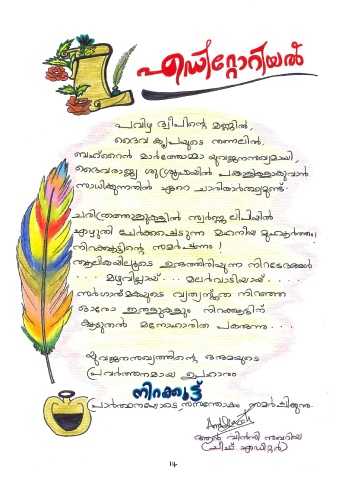 എഡിറ്റോറിയൽ
പവിഴ ദ്വീപിന്റെ മണ്ണിൽ,
ദൈവ കൃപയുടെ തണലിൽ,
ബഹ്റൈൻ മാർത്തോമ്മാ യുവജനസഖ്യമായി,
ദൈവരാജ്യ ശുശ്രൂഷയിൽ പങ്കാളിയാകുവാൻ
സാധിക്കുന്നതിൽ ഏറെ ചാരിതാർത്ഥ്യമുണ്ട്.
ചരിത്രത്താളുകളിൽ സ്വർണ്ണ ലിപിയിൽ
എഴുതി ചേർക്കപ്പെടുന്ന മഹനീയ മുഹൂർത്തം;
നിറക്കൂട്ടിന്റെ സമർപ്പണം!
തൂലികയിലൂടെ ഉതിരുന്ന നിറഭേദങ്ങൾ
... മഴവില്ലായ് ... മലർവാടിയായ് ....
സർഗാത്മകയുടെ വ്യത്യസ്ത നിറഞ്ഞ
ഓരോ നിറക്കൂട്ടിന്
കൂടുതൽ മനോഹാരിത പകരുന്നു ...
യുവജനസഖ്യത്തിന്റെ ഒരുമയുടെ
പ്രവർത്തനമായ ഉപഹാരം
നിറക്കൂട്ട്
പ്രാർത്ഥനയോടെ, സന്തോഷം സമർപ്പിക്കുന്നു.
(ചീഫ് എഡിറ്റർ)
14